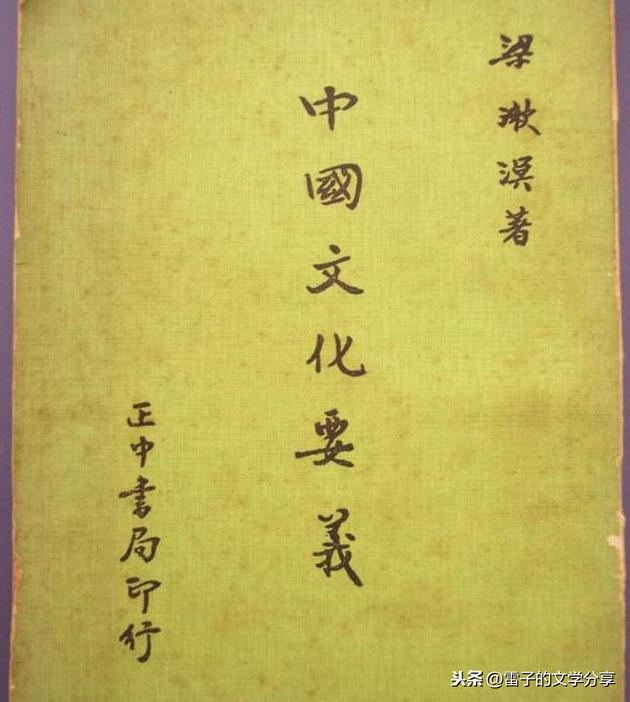 梁漱溟著
中國文化要義
正中書局印行
头条 @雷子的文学分享